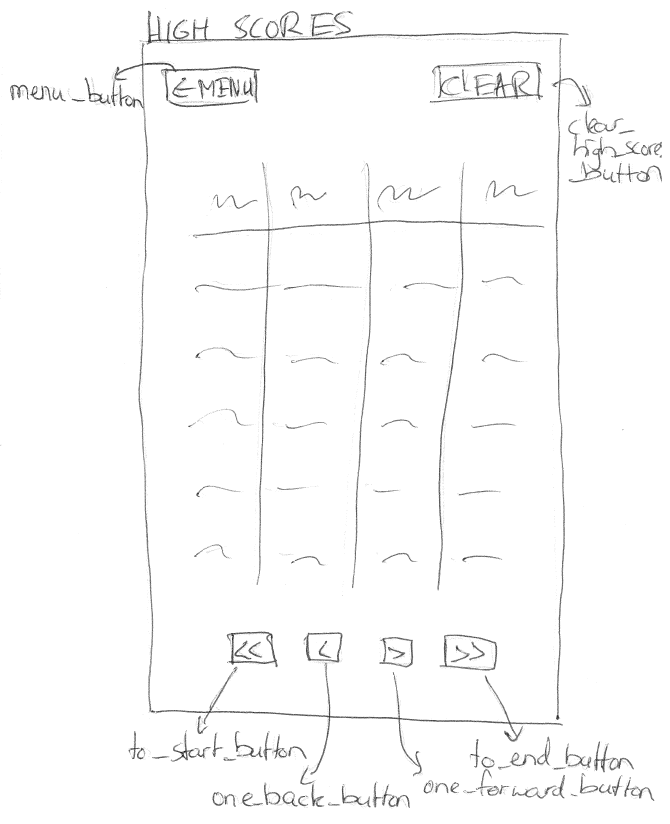 HIGH SCORES
menu_button
←MENU
CLEAR
clear_
high_score
_button
<<
<
>
>>
to_start_button
to_end_button
one_back_button
one_forward_button